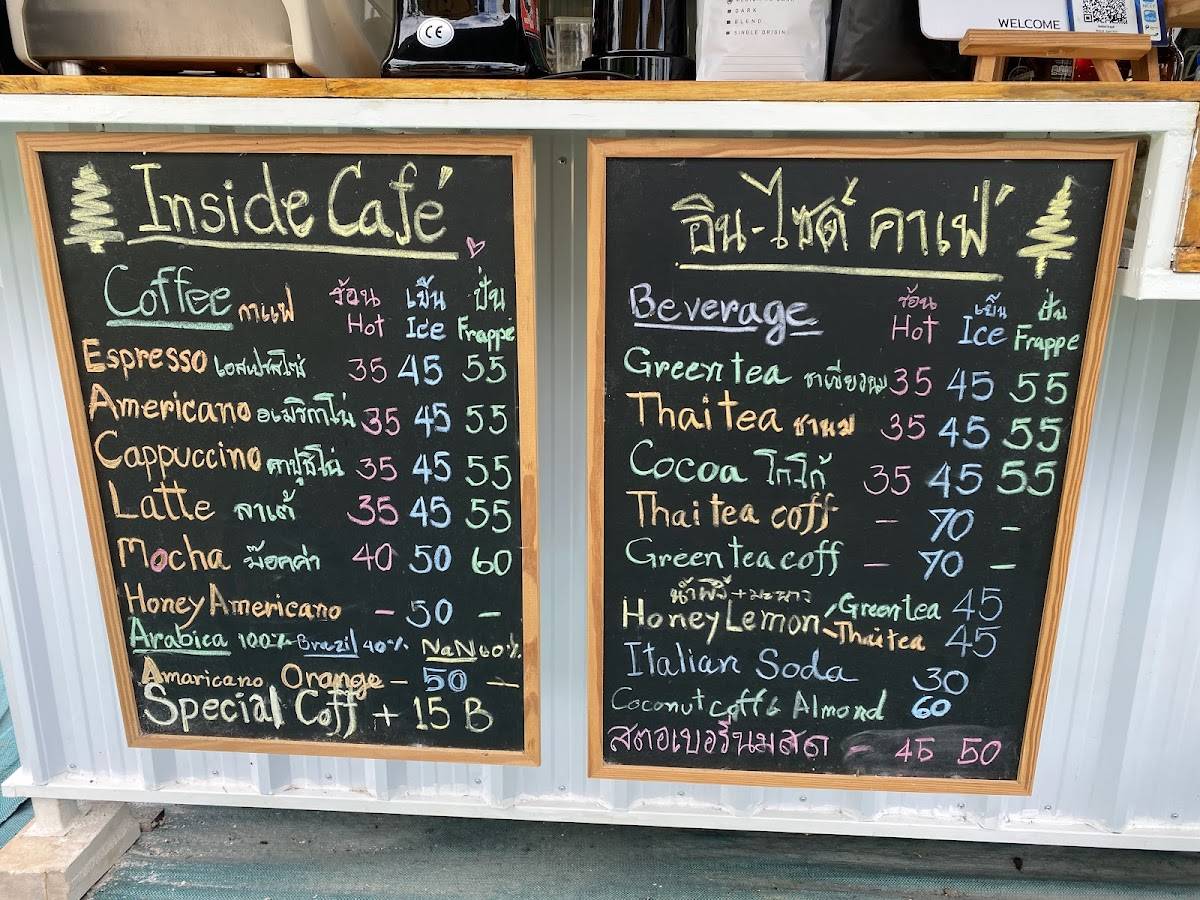 DARK
BLEND
SINGLE ORIGIN
WELCOME
CE
Inside Café
Coffee กาแฟ ร้อน เย็น ปั่น
Hot Ice Frappe
Espresso เอสเปรสโซ่ 35 45 55
Americano อเมริกาโน่ 35 45 55
Cappuccino คาปูชิโน่ 35 45 55
Latte ลาเต้ 35 45 55
Mocha ม๊อคค่า 40 50 60
Honey Americano - 50 -
Arabica 100% Brazil 40% NaN 60%
Amaricano Orange - 50 -
Special Coff + 15 B
อิน-ไซด์ คาเฟ่
Beverage ร้อน เย็น ปั่น
Hot Ice Frappe
Green tea ชาเขียวนม 35 45 55
Thai tea ชานม 35 45 55
Cocoa โกโก้ 35 45 55
Thai tea coff - 70 -
Green tea coff - 70 -
น้ำผึ้ง + มะนาว
Honey Lemon - Green tea 45
- Thai tea 45
Italian Soda 30
Coconut coff & Almond 60
สตอเบอรี่นมสด - 45 50